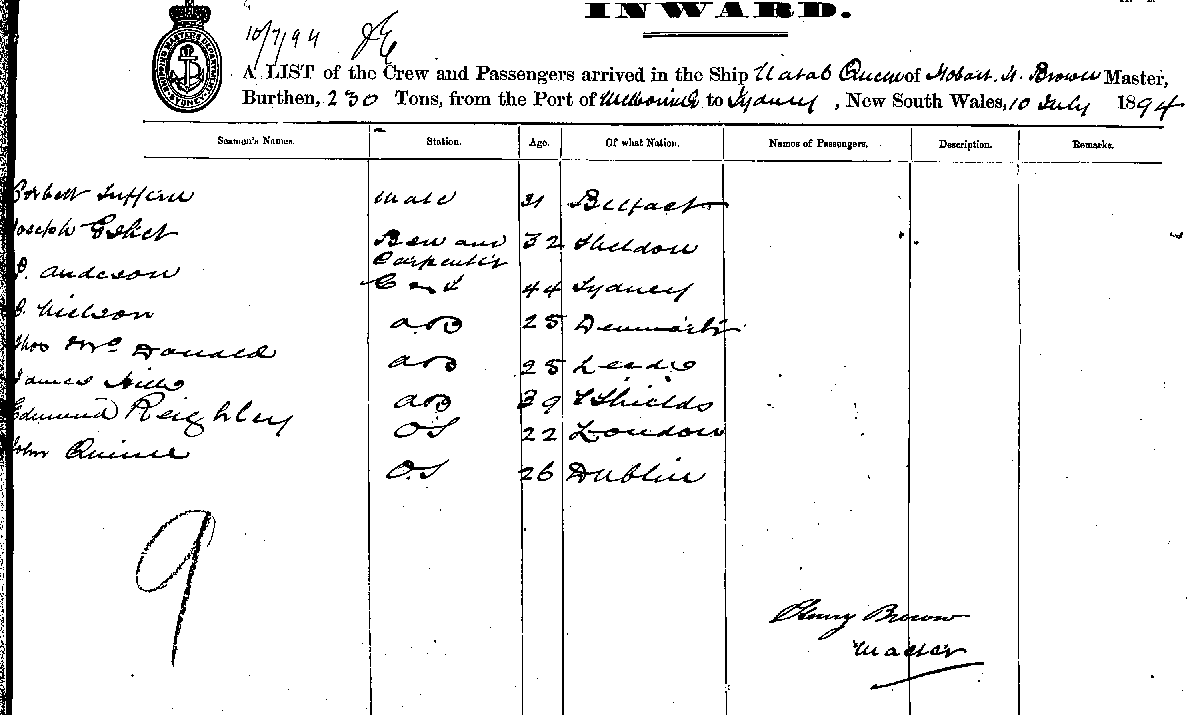 INWARD.
10/7/94
A LIST of the Crew and Passengers arrived in the Ship Natal Queen of Hobart, H. Brown Master,
Burthen, 230 Tons, from the Port of Melbourne to Sydney, New South Wales, 10 July 1894
Seamen's Names. Station. Age. Of what Nation. Names of Passengers. Description. Remarks.
Corbett mate 31 Belfast
Joseph Bsn and 32 Sheldon
Carpenter
Anderson C & S 44 Sydney
Nielson AB 25 Denmark
Thos McDonald AB 25 Leeds
James Hill AB 39 Shields
Edmund Keighley OS 22 London
John Quinn O.S 26 Dublin
9
Henry Brown
Master